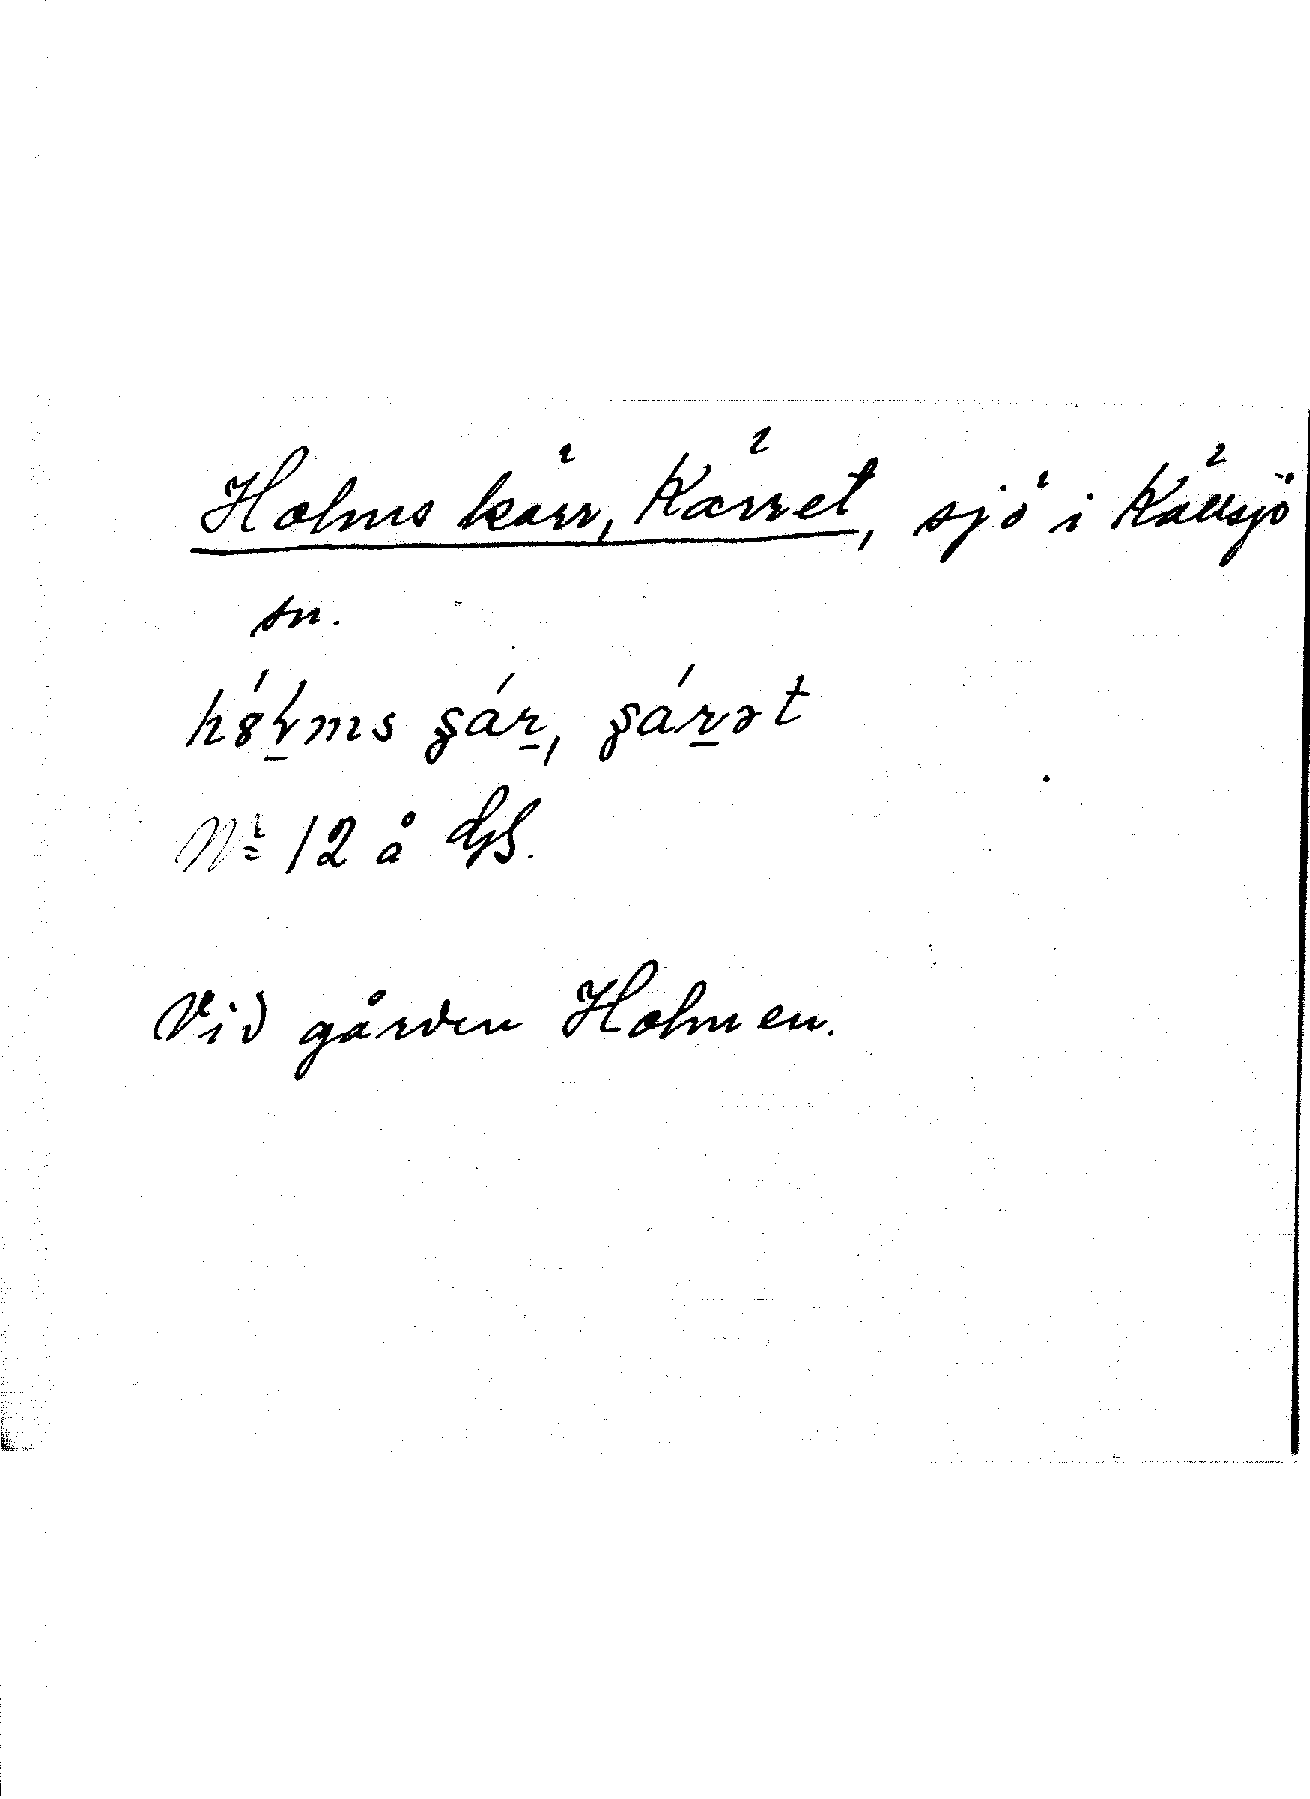 Holms kärr, Kärret, sjö i Källsjö
sn.
hólms gár, gárət
No 12 å
Vid gården Holmen.